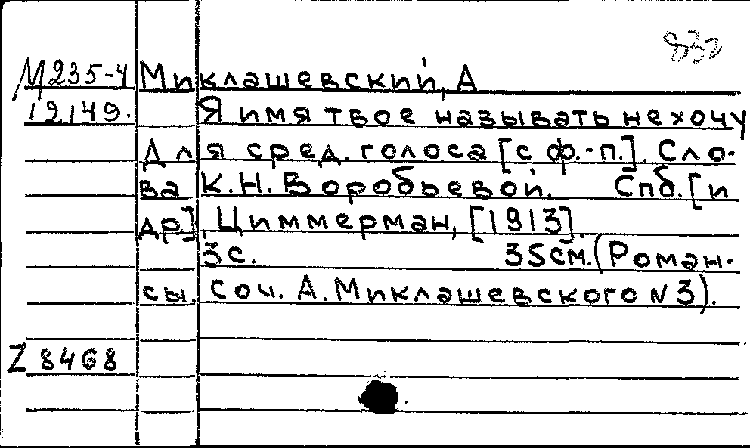 832
М235-4 Миклашевский, А
19149. Я имя твое называть не хочу
для сред. голоса [с ф.-п.]. Сло-
ва К.Н. Воробьевой. Спб. [и
др.], Циммерман, [1913].
3с. 35см. (Роман-
сы. Соч. А. Миклашевского N 3).
Z 8468